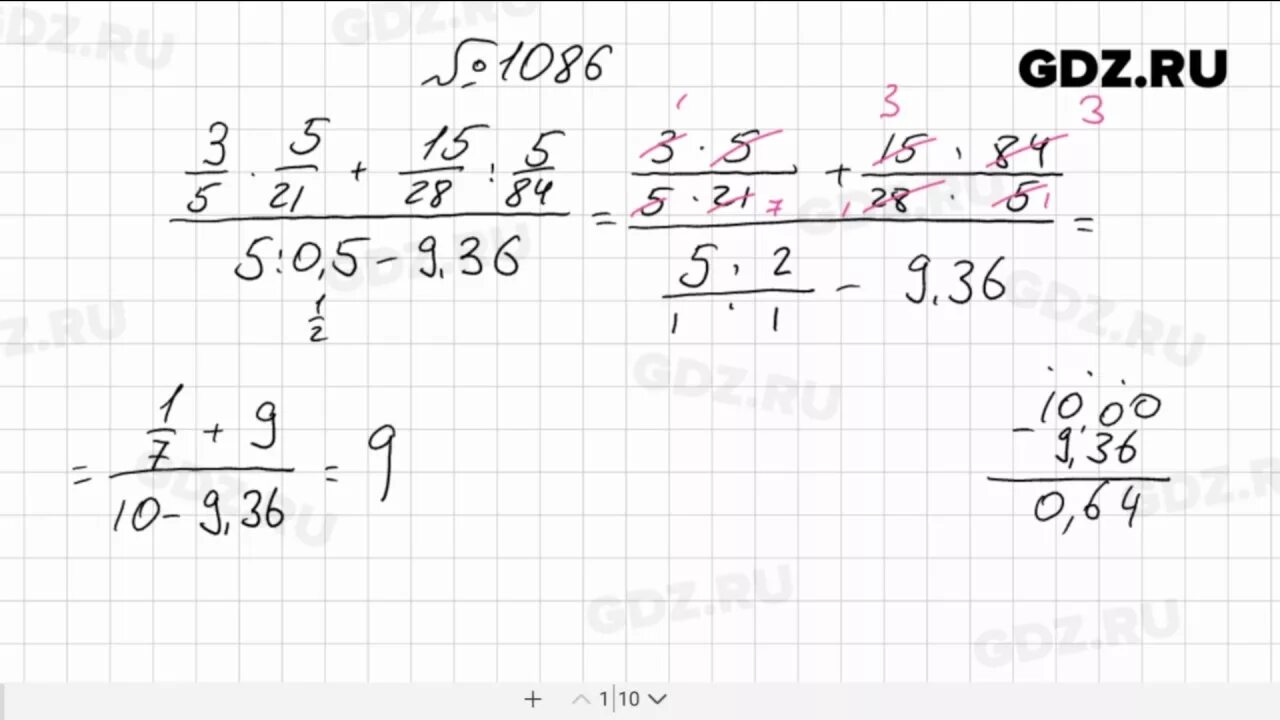 №1086
GDZ.RU
3/5 · 5/21 + 15/28 : 5/84 = 3 · 5 / 5 · 21 + 15 · 84 / 28 · 5 =
1 3 3
7 1 1
5:0,5 – 9,36
5 · 2 / 1 · 1 – 9,36
1/2
= 1/7 + 9 / 10 – 9,36 = 9
10,00
– 9,36
0,64
GDZ.RU
GDZ.RU
GDZ.RU
GDZ.RU
GDZ.RU
GDZ.RU
GDZ.RU
GDZ.RU
GDZ.RU
GDZ.RU
GDZ.RU
+ 1|10